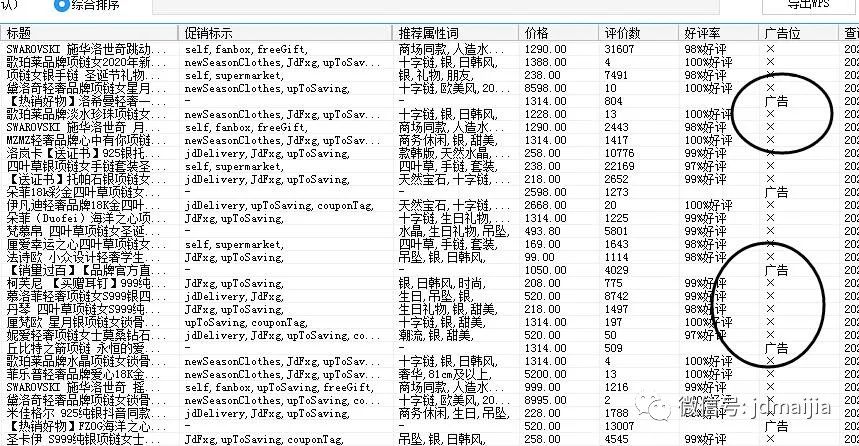 认)
综合排序
导出WPS
标题 促销标示 推荐属性词 价格 评价数 好评率 广告位 查
SWAROVSKI 施华洛世奇跳动... self,fanbox,freeGift, 商场同款,人造水... 1290.00 31607 98%好评 × 202
歌珀莱品牌项链女2020年新... newSeasonClothes,JdFxg,upToSav... 十字链,银,日韩风, 1388.00 4 100%好评 × 202
项链女银手链 圣诞节礼物... self,supermarket, 银,礼物,朋友, 238.00 7491 98%好评 × 202
黛洛奇轻奢品牌项链女星月... newSeasonClothes,upToSaving, 十字链,欧美风,20... 8598.00 10 100%好评 × 202
【热销好物】洛希曼轻奢一... - - 1314.00 804 广告 202
歌珀莱品牌淡水珍珠项链女... newSeasonClothes,JdFxg,upToSav... 十字链,银,日韩风, 1228.00 13 100%好评 × 202
SWAROVSKI 施华洛世奇 月... self,fanbox,freeGift, 商场同款,人造水... 1290.00 2443 98%好评 × 202
MZMZ轻奢品牌心中有你项链... newSeasonClothes,JdFxg,upToSav... 商务休闲,银,甜美, 1314.00 1417 100%好评 × 202
洛岚卡【送证书】925银托... jdDelivery,JdFxg,upToSaving, 款韩版,天然水晶,... 258.00 10776 99%好评 × 202
四叶草银项链女手链套装圣... jdDelivery,JdFxg,upToSaving, 四叶草,手链,套装, 238.00 22169 97%好评 × 202
【送证书】托帕石银项链女... jdDelivery,JdFxg,upToSaving, 天然宝石,十字链,... 218.00 2652 99%好评 × 202
朵菲18k彩金四叶草项链女... - - 2598.00 1273 广告 202
伊凡迪轻奢品牌18K金四叶... jdDelivery,upToSaving,couponTag, 天然宝石,十字链,... 2668.00 20 100%好评 × 202
朵菲（Duofei）海洋之心项... JdFxg,upToSaving, 十字链,生日礼物,... 1314.00 1225 99%好评 × 202
梵慕帛 四叶草项链女圣诞... - 水晶,生日礼物,银, 493.80 5801 99%好评 × 202
厘爱幸运之心四叶草项链女... self,supermarket, 四叶草,手链,套装, 169.00 1643 98%好评 × 202
法诗欧 小众设计轻奢学生... JdFxg,upToSaving, 吊坠,银,日韩风, 99.00 1114 98%好评 × 202
【销量过百】【品牌官方直... - - 1050.00 4029 广告 202
柯芙尼 【买赠耳钉】999纯... JdFxg,upToSaving, 银,日韩风,时尚, 208.00 775 99%好评 × 202
慕洛菲轻奢项链女S999银四... jdDelivery,JdFxg, 生日,吊坠,银, 520.00 8742 99%好评 × 202
丹琴 四叶草项链女S999纯... JdFxg,upToSaving, 生日礼物,银,甜美, 218.00 1497 98%好评 × 202
厘梵欧 星月银项链女锁骨... upToSaving,couponTag, 十字链,银,甜美, 1314.00 197 100%好评 × 202
妮爱轻奢项链女士莫桑钻石... jdDelivery,JdFxg,upToSaving,co... 潮流,银,甜美, 520.00 50 97%好评 × 202
丘比特之箭项链 永恒的爱... - - 1314.00 509 广告 202
歌珀莱品牌水晶项链女锁骨... newSeasonClothes,JdFxg,upToSav... 十字链,银,日韩风, 1314.00 4 100%好评 × 202
菲乐普轻奢品牌爱心18K金... newSeasonClothes,JdFxg,upToSav... 奢华,81cm及以上, 5200.00 13 100%好评 × 202
SWAROVSKI 施华洛世奇 摇... self,fanbox,upToSaving,freeGift, 商场同款,人造水... 999.00 1216 99%好评 × 202
黛洛奇轻奢品牌项链女锁骨... newSeasonClothes,upToSaving,co... 十字链,欧美风,20... 8995.00 2 × 202
米佳格尔 925纯银抖音同款... jdDelivery,JdFxg,upToSaving, 商务休闲,生日,吊... 228.00 1788 202
【热销好物】FZOG海洋之心... - - 520.00 13007 广告 202
圣卡伊 S999纯银项链女士... JdFxg,couponTag, 吊坠,银,日韩风, 258.00 4545 99%好评 × 202
微信号: jdmaijia